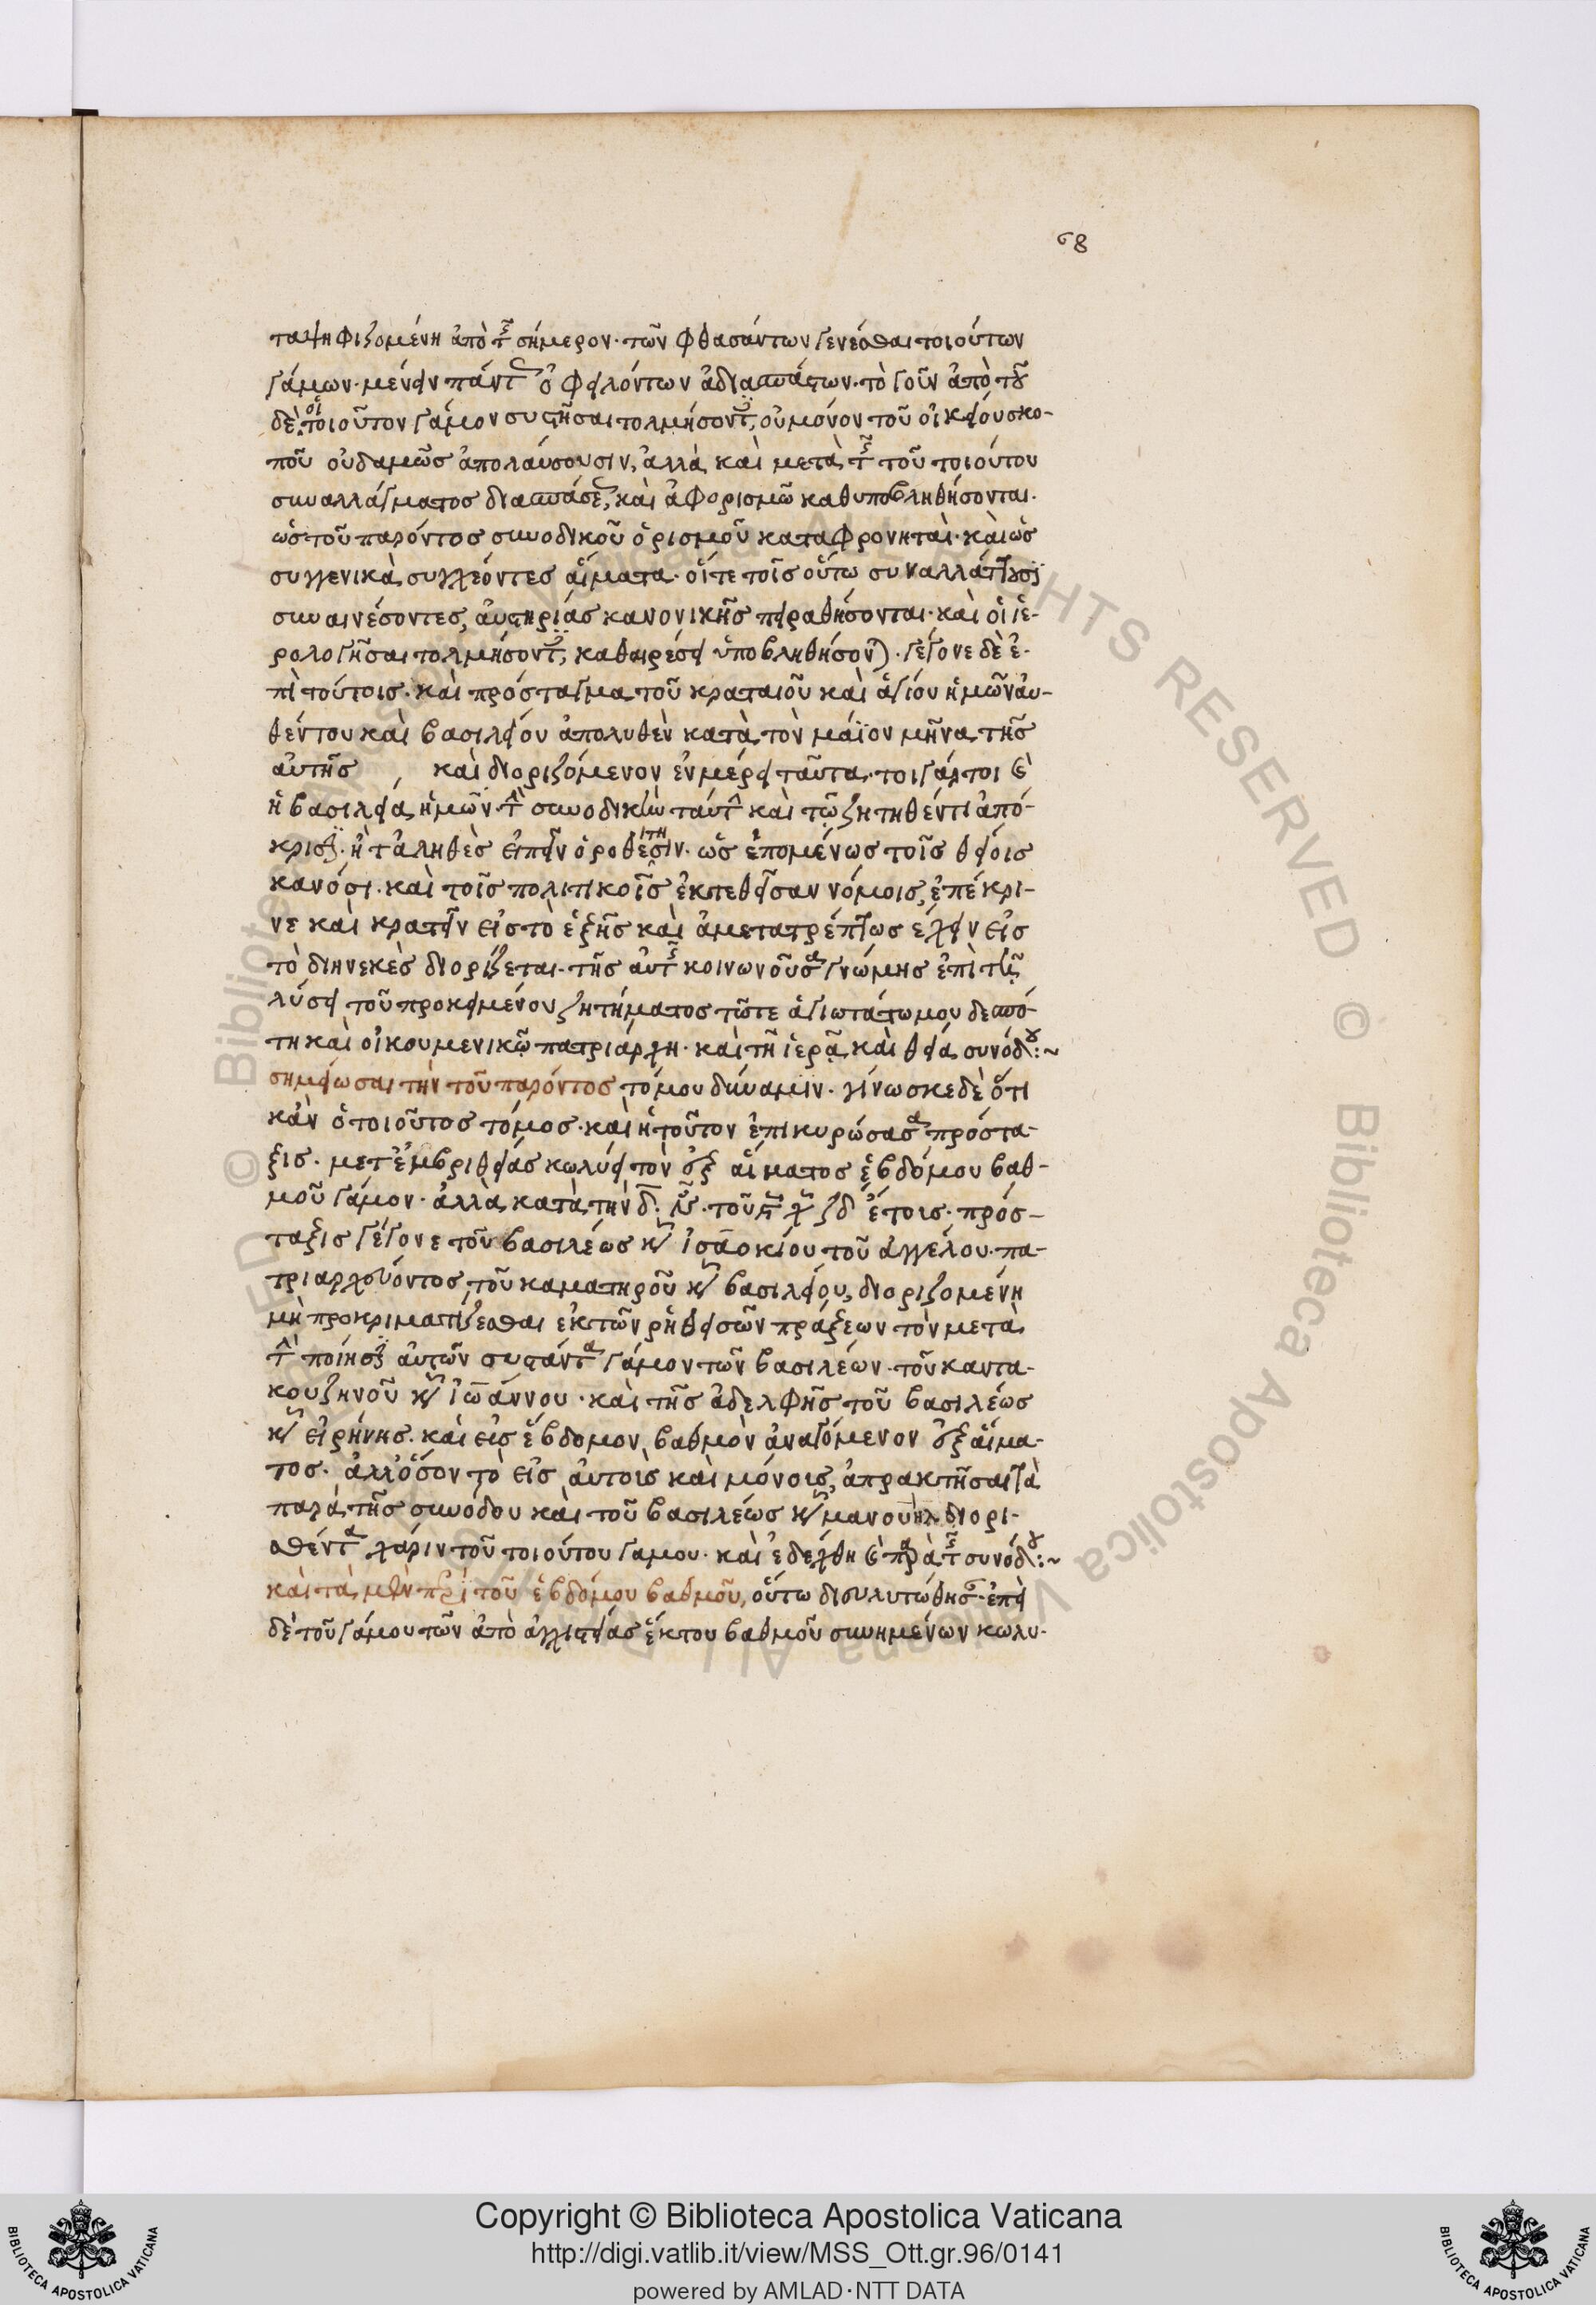 68
ταψηφιζομένη ἀπὸ τῆς σήμερον· τῶν φθασάντων γενέσθαι τοιούτων
γάμων· μένειν πάντως ὀφειλόντων ἀδιασπάστων· τὸ γοῦν ἀπὸ τοῦ
δὲ οἱ τοιοῦτον γάμον συστῆσαι τολμήσοντες, οὐ μόνον τοῦ οἰκείου σκο-
ποῦ οὐδαμῶς ἀπολαύσουσιν, ἀλλὰ καὶ μετὰ τῆς τοῦ τοιούτου
συναλλάγματος διασπάσεως, καὶ ἀφορισμῶ καθυποβληθήσονται.
ὡς τοῦ παρόντος συνοδικοῦ ὁρισμοῦ καταφρονηταὶ· καὶ ὡς
συγγενικὰ συγχέοντες αἵματα· οἵ τε τοῖς οὕτω συναλλάττουσι
συναινέσοντες, αὐστηρίας κανονικῆς πειραθήσονται· καὶ οἱ ἱε-
ρολογῆσαι τολμήσοντες, καθαιρέσει ὑποβληθήσονται· γέγονε δὲ ἐ-
πὶ τούτοις· καὶ πρόσταγμα τοῦ κραταιοῦ καὶ ἁγίου ἡμῶν αὐ-
θέντου καὶ βασιλείου ἀπολυθὲν κατὰ τὸν μάϊον μῆνα τῆς
αὐτῆς , καὶ διοριζόμενον ἐν μέρει ταῦτα· τοιγάρτοι καὶ
ἡ βασιλεία ἡμῶν· τὴν συνοδικὴν ταύτην καὶ τῶ ζητηθέντι ἀπό-
κρισιν· ἢ τἀληθὲς εἰπεῖν ὁροθέσιν· ὡς ἑπομένως τοῖς θείοις
κανόσι· καὶ τοῖς πολιτικοῖς ἐκτεθεῖσαν νόμοις, ἐπέκρι-
νε καὶ κρατεῖν εἰς τὸ ἑξῆς καὶ ἀμετατρέπτως ἔχειν εἰς
τὸ διηνεκὲς διορίζεται· τῆς αὐτῆς κοινωνοῦσα γνώμης ἐπὶ τῆ
λύσει τοῦ προκειμένου ζητήματος τῶ τε ἁγιωτάτω μου δεσπό-
τη καὶ οἰκουμενικῶ πατριάρχη· καὶ τῆ ἱερᾶ καὶ θεία συνόδου:~
σημείωσαι τὴν τοῦ παρόντος τόμου δύναμιν· γίνωσκε δὲ ὅτι
κἂν ὁ τοιοῦτος τόμος· καὶ ἡ τοῦτον ἐπικυρώσασα πρόστα-
ξις· μετ' ἐμβριθείας κωλύει τὸν ἐξ αἵματος ἑβδόμου βαθ-
μοῦ γάμον· ἀλλὰ κατὰ τὴν δ̅· ἔτοις· πρόσ-
ταξις γέγονε τοῦ βασιλέως κυροῦ ἰσαακίου τοῦ ἀγγέλου· πα-
τριαρχοῦντος, τοῦ καματηροῦ κυροῦ βασιλείου, διοριζομένη
μὴ προκριματίζεσθαι ἐκ τῶν ῥηθεισῶν πράξεων τὸν μετὰ
τὴν ποίησιν αὐτῶν συστάντα γάμον τῶν βασιλέων· τοῦ καντα-
κουζηνοῦ κυροῦ ἰωάννου· καὶ τῆς ἀδελφῆς τοῦ βασιλέως
κυρᾶς εἰρήνης· καὶ εἰς ἕβδομον βαθμὸν ἀναγόμενον ἐξ αἵμα-
τος· ἀλλ' ὅσον τὸ εἰς αὐτοῖς καὶ μόνοις, ἀπρακτῆσαι τὰ
παρὰ τῆς συνόδου καὶ τοῦ βασιλέως κυροῦ μανουὴλ διορι-
σθέντα χάριν τοῦ τοιούτου γάμου· καὶ ἐδέχθη καὶ παρὰ τῆς συνόδου:~
καὶ τὰ μὲν περὶ τοῦ ἑβδόμου βαθμοῦ, οὕτω διευλυτώθησαν· ἐπεὶ
δὲ τοῦ γάμου τῶν ἀπὸ ἀγχιστείας ἕκτου βαθμοῦ συνημένων κωλυ-
Copyright © Biblioteca Apostolica Vaticana
http://digi.vatlib.it/view/MSS_Ott.gr.96/0141
powered by AMLAD·NTT DATA